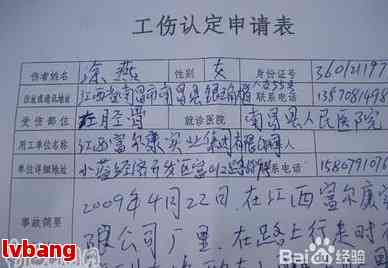 工伤认定申请表
伤者姓名 涂燕 性别 女 身份证号 360121197
住址或通讯地址 江西省南昌市南昌县 联系电话 1357081498
受伤部位 就诊医院 南昌县人民医院
用工单位名称 江西富尔康实业集团有限公司
单位详细地址 小蓝经济开发区富山 联系电话 158079101
事故简要 2009年4月22日,在江西富尔康实
限公司厂里,在路上行走时
lvbang
lvbang
Bai 百度经验